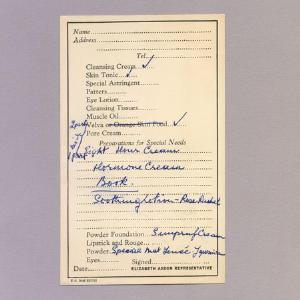 Name
Address
Tel.
Cleansing Cream ✓
Skin Tonic ✓
Special Astringent
Patters
Eye Lotion
Cleansing Tissues
Muscle Oil
Velva or Orange Skin Food ✓
Pore Cream
Preparations for Special Needs
Eight Hour Cream
Hormone Cream
Book
Soothing lotion - Rose
Powder Foundation Cream
Lipstick and Rouge
Powder Special Mat
Eyes
Signed
Date ELIZABETH ARDEN REPRESENTATIVE